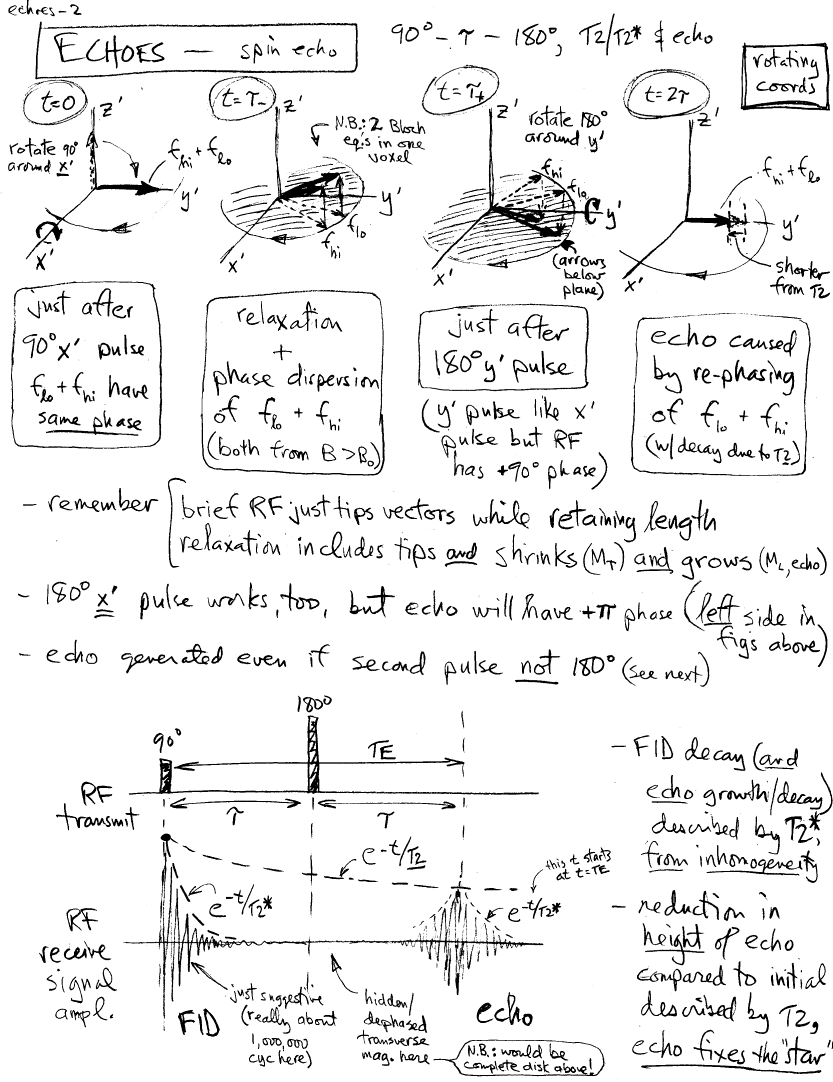 echoes-2
ECHOES — spin echo
90° - τ - 180°, T2/T2* & echo
rotating
coords
t=0
z'
rotate 90°
around x'
f_hi + f_lo
y'
x'
t=τ-
z'
N.B.: 2 Bloch
eq's in one
voxel
y'
f_lo
f_hi
x'
t=τ+
z'
rotate 180°
around y'
f_hi
f_lo
y'
(arrows
below
plane)
x'
t=2τ
z'
f_hi + f_lo
y'
shorter
from T2
x'
just after
90°x' pulse
f_lo + f_hi have
same phase
relaxation
+
phase dispersion
of f_lo + f_hi
(both from B > B_o)
just after
180°y' pulse
(y' pulse like x'
pulse but RF
has +90° phase)
echo caused
by re-phasing
of f_lo + f_hi
(w/decay due to T2)
- remember [brief RF just tips vectors while retaining length
relaxation includes tips and shrinks (M_T) and grows (M_L, echo)
- 180° x' pulse works, too, but echo will have +π phase (left side in
figs above)
- echo generated even if second pulse not 180° (see next)
90°
180°
TE
RF
transmit
τ
τ
e^-t/T2
this t starts
at t=TE
e^-t/T2*
e^-t/T2*
RF
receive
signal
ampl.
FID
just suggestive
(really about
1,000,000
cyc here)
hidden/
dephased
transverse
mag. here
echo
N.B.: would be
complete disk above!
- FID decay (and
echo growth/decay)
described by T2*,
from inhomogeneity
- reduction in
height of echo
compared to initial
described by T2,
echo fixes the "star"